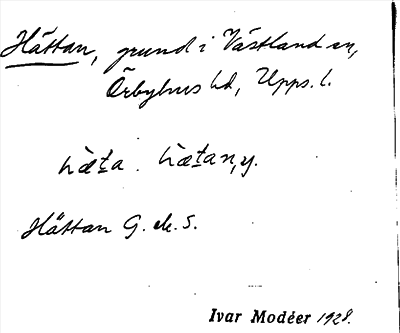 Hättan, grund i Västland sn,
Örbyhus hd, Upps. l.
hæ̀ta . hæ̀tan, y.
Hättan G. ek. S.
Ivar Modéer 1928.